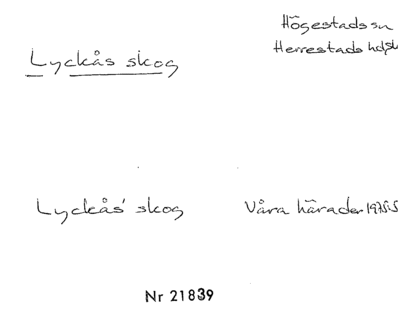 Högestads sn
Lyckås skog
Herrestads hd
Lyckås' skog
Våra härader
Nr 21839